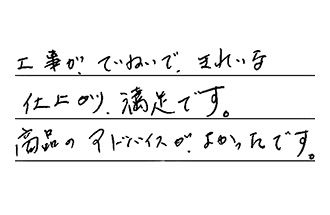 工事が、ていねいで、きれいな
仕上がり、満足です。
商品のアドバイスが、よかったです。